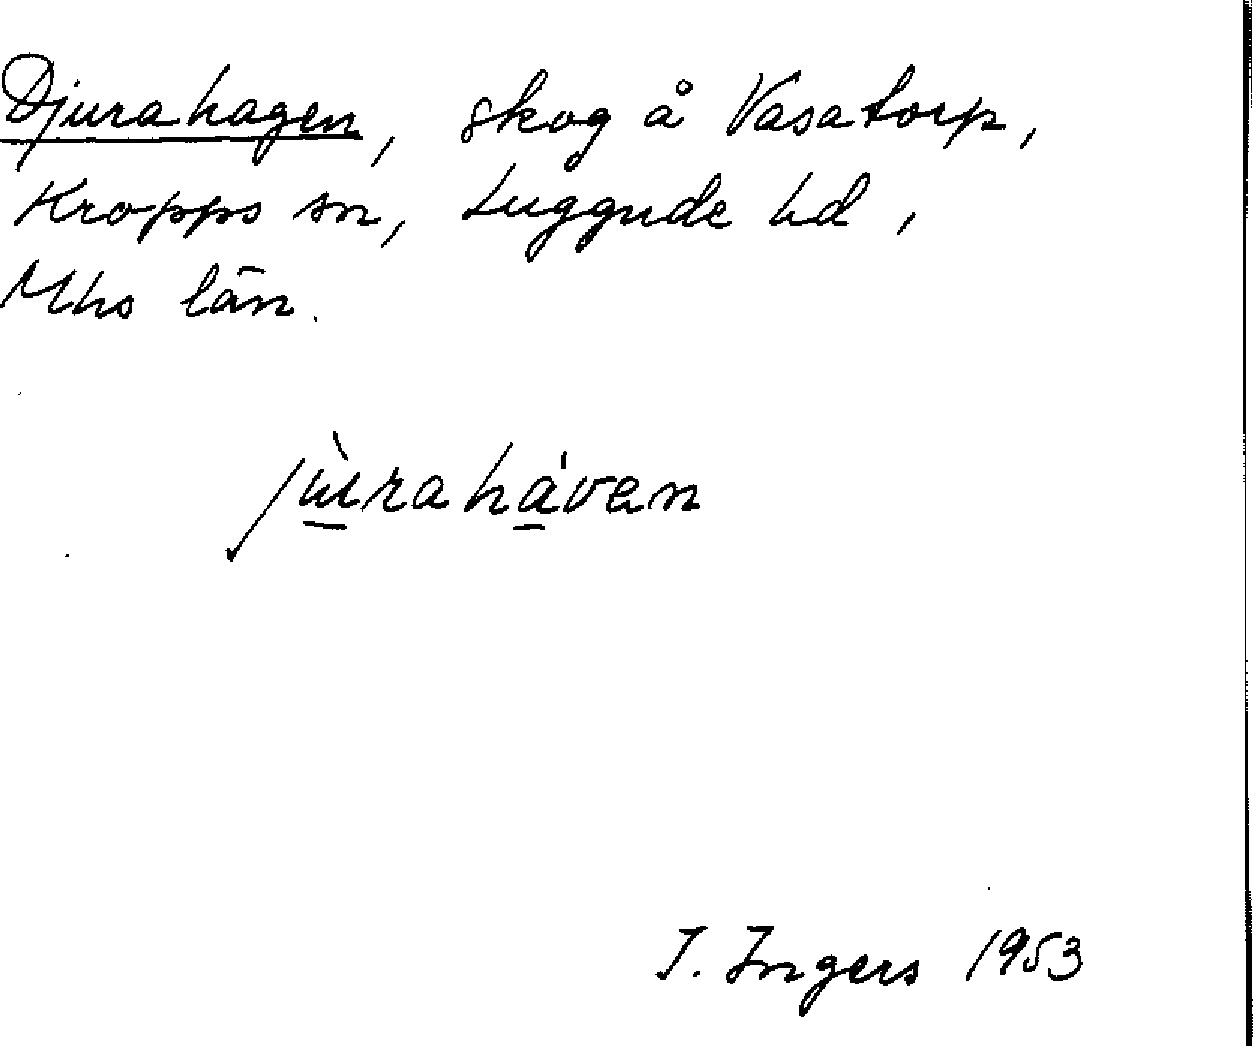 Djurahagen, skog å Vasatorp,
Kropps sn, Luggude hd,
Mhs län.
jùraháven
I. Ingers 1953